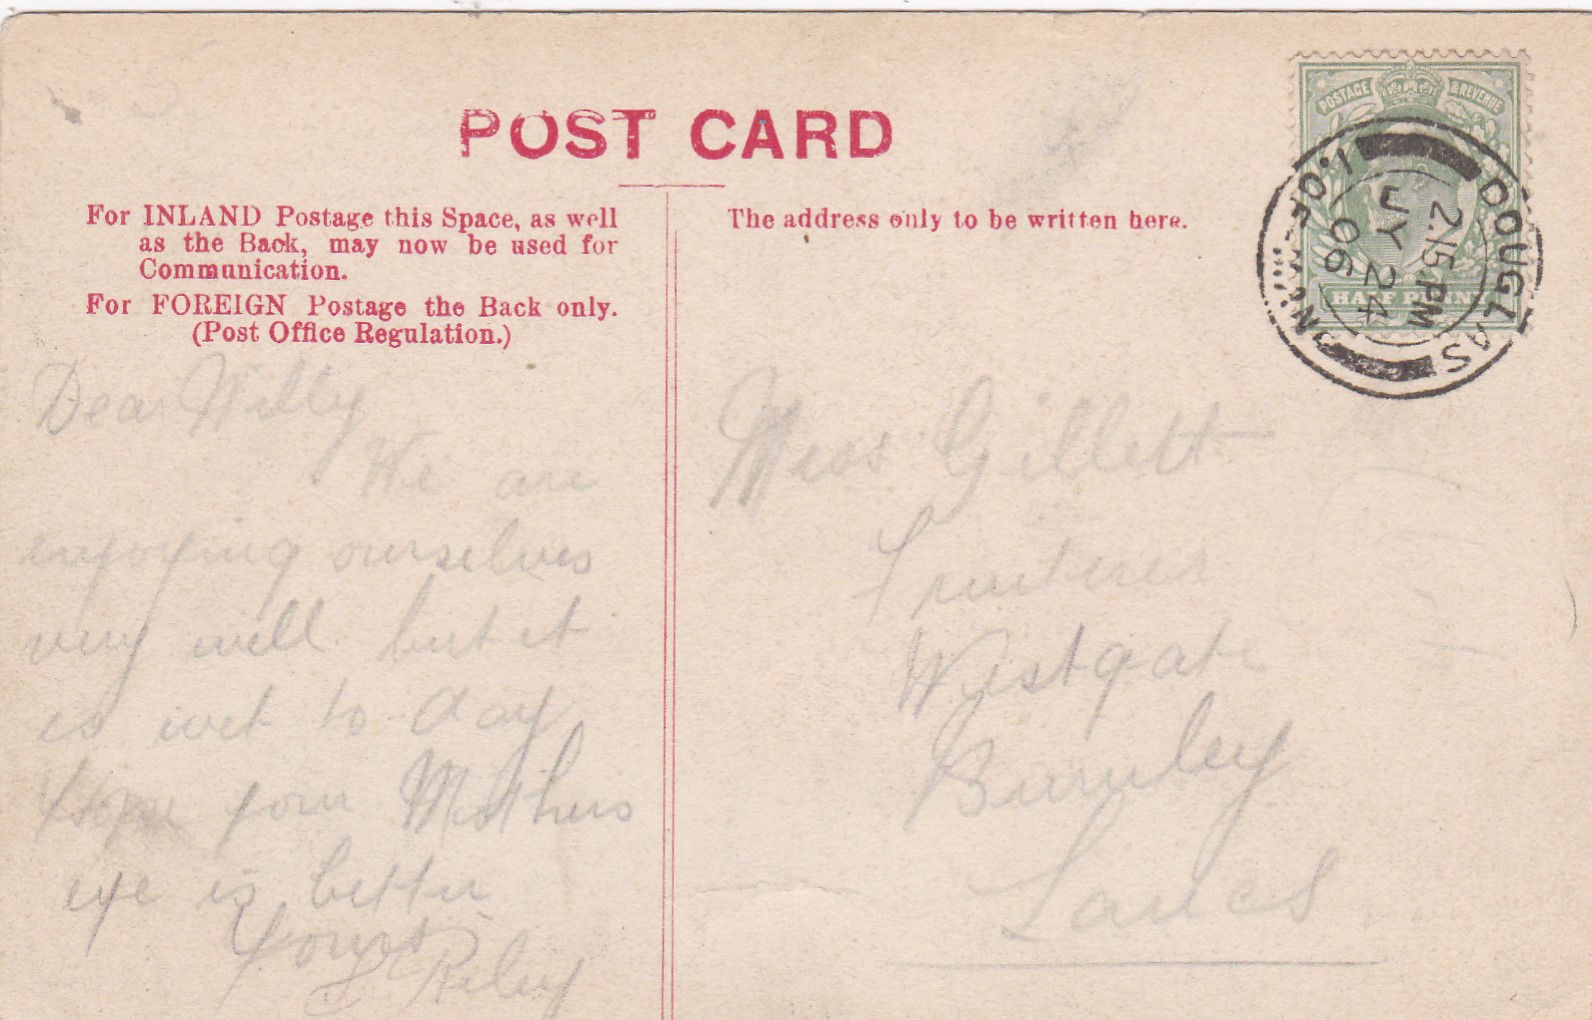 POST CARD
For INLAND Postage this Space, as well
as the Back, may now be used for
Communication.
For FOREIGN Postage the Back only.
(Post Office Regulation.)
The address only to be written here.
POSTAGE & REVENUE
HALF PENNY
DOUGLAS
2.15 PM
JY 24
06
I. OF MAN
Dear Willy
We are
enjoying ourselves
very well but it
is wet to-day
Hope your Mothers
eye is better
Yours
Riley
Miss Gillett
Fruiterer
Westgate
Burnley
Lancs